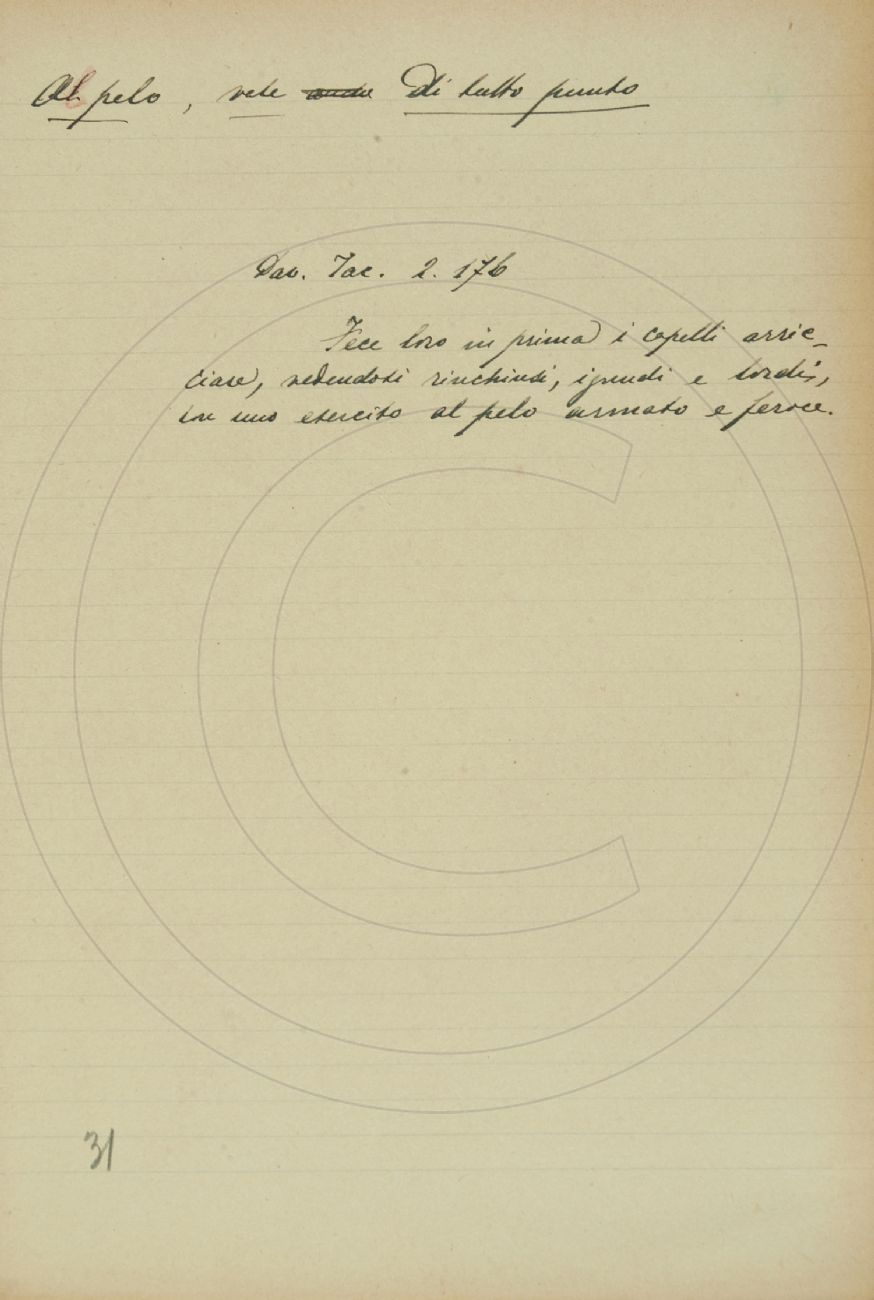 Al pelo, vale Di tutto punto
Dav. Tac. 2. 176
Fece loro in prima i capelli arric-
ciare, vedendosi rinchiusi, ignudi e lordi,
con uno esercito al pelo armato e feroce.
31